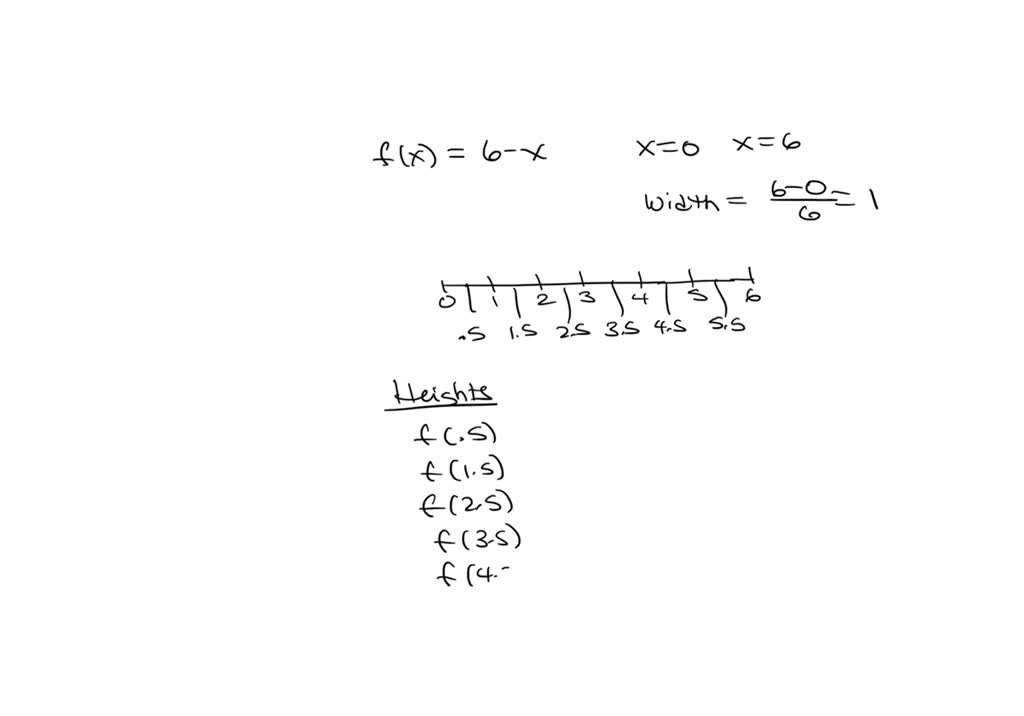 f(x) = 6-x x=0 x=6
width = 6-0/6 = 1
0 1 2 3 4 5 6
.5 1.5 2.5 3.5 4.5 5.5
Heights
f(.5)
f(1.5)
f(2.5)
f(3.5)
f(4.